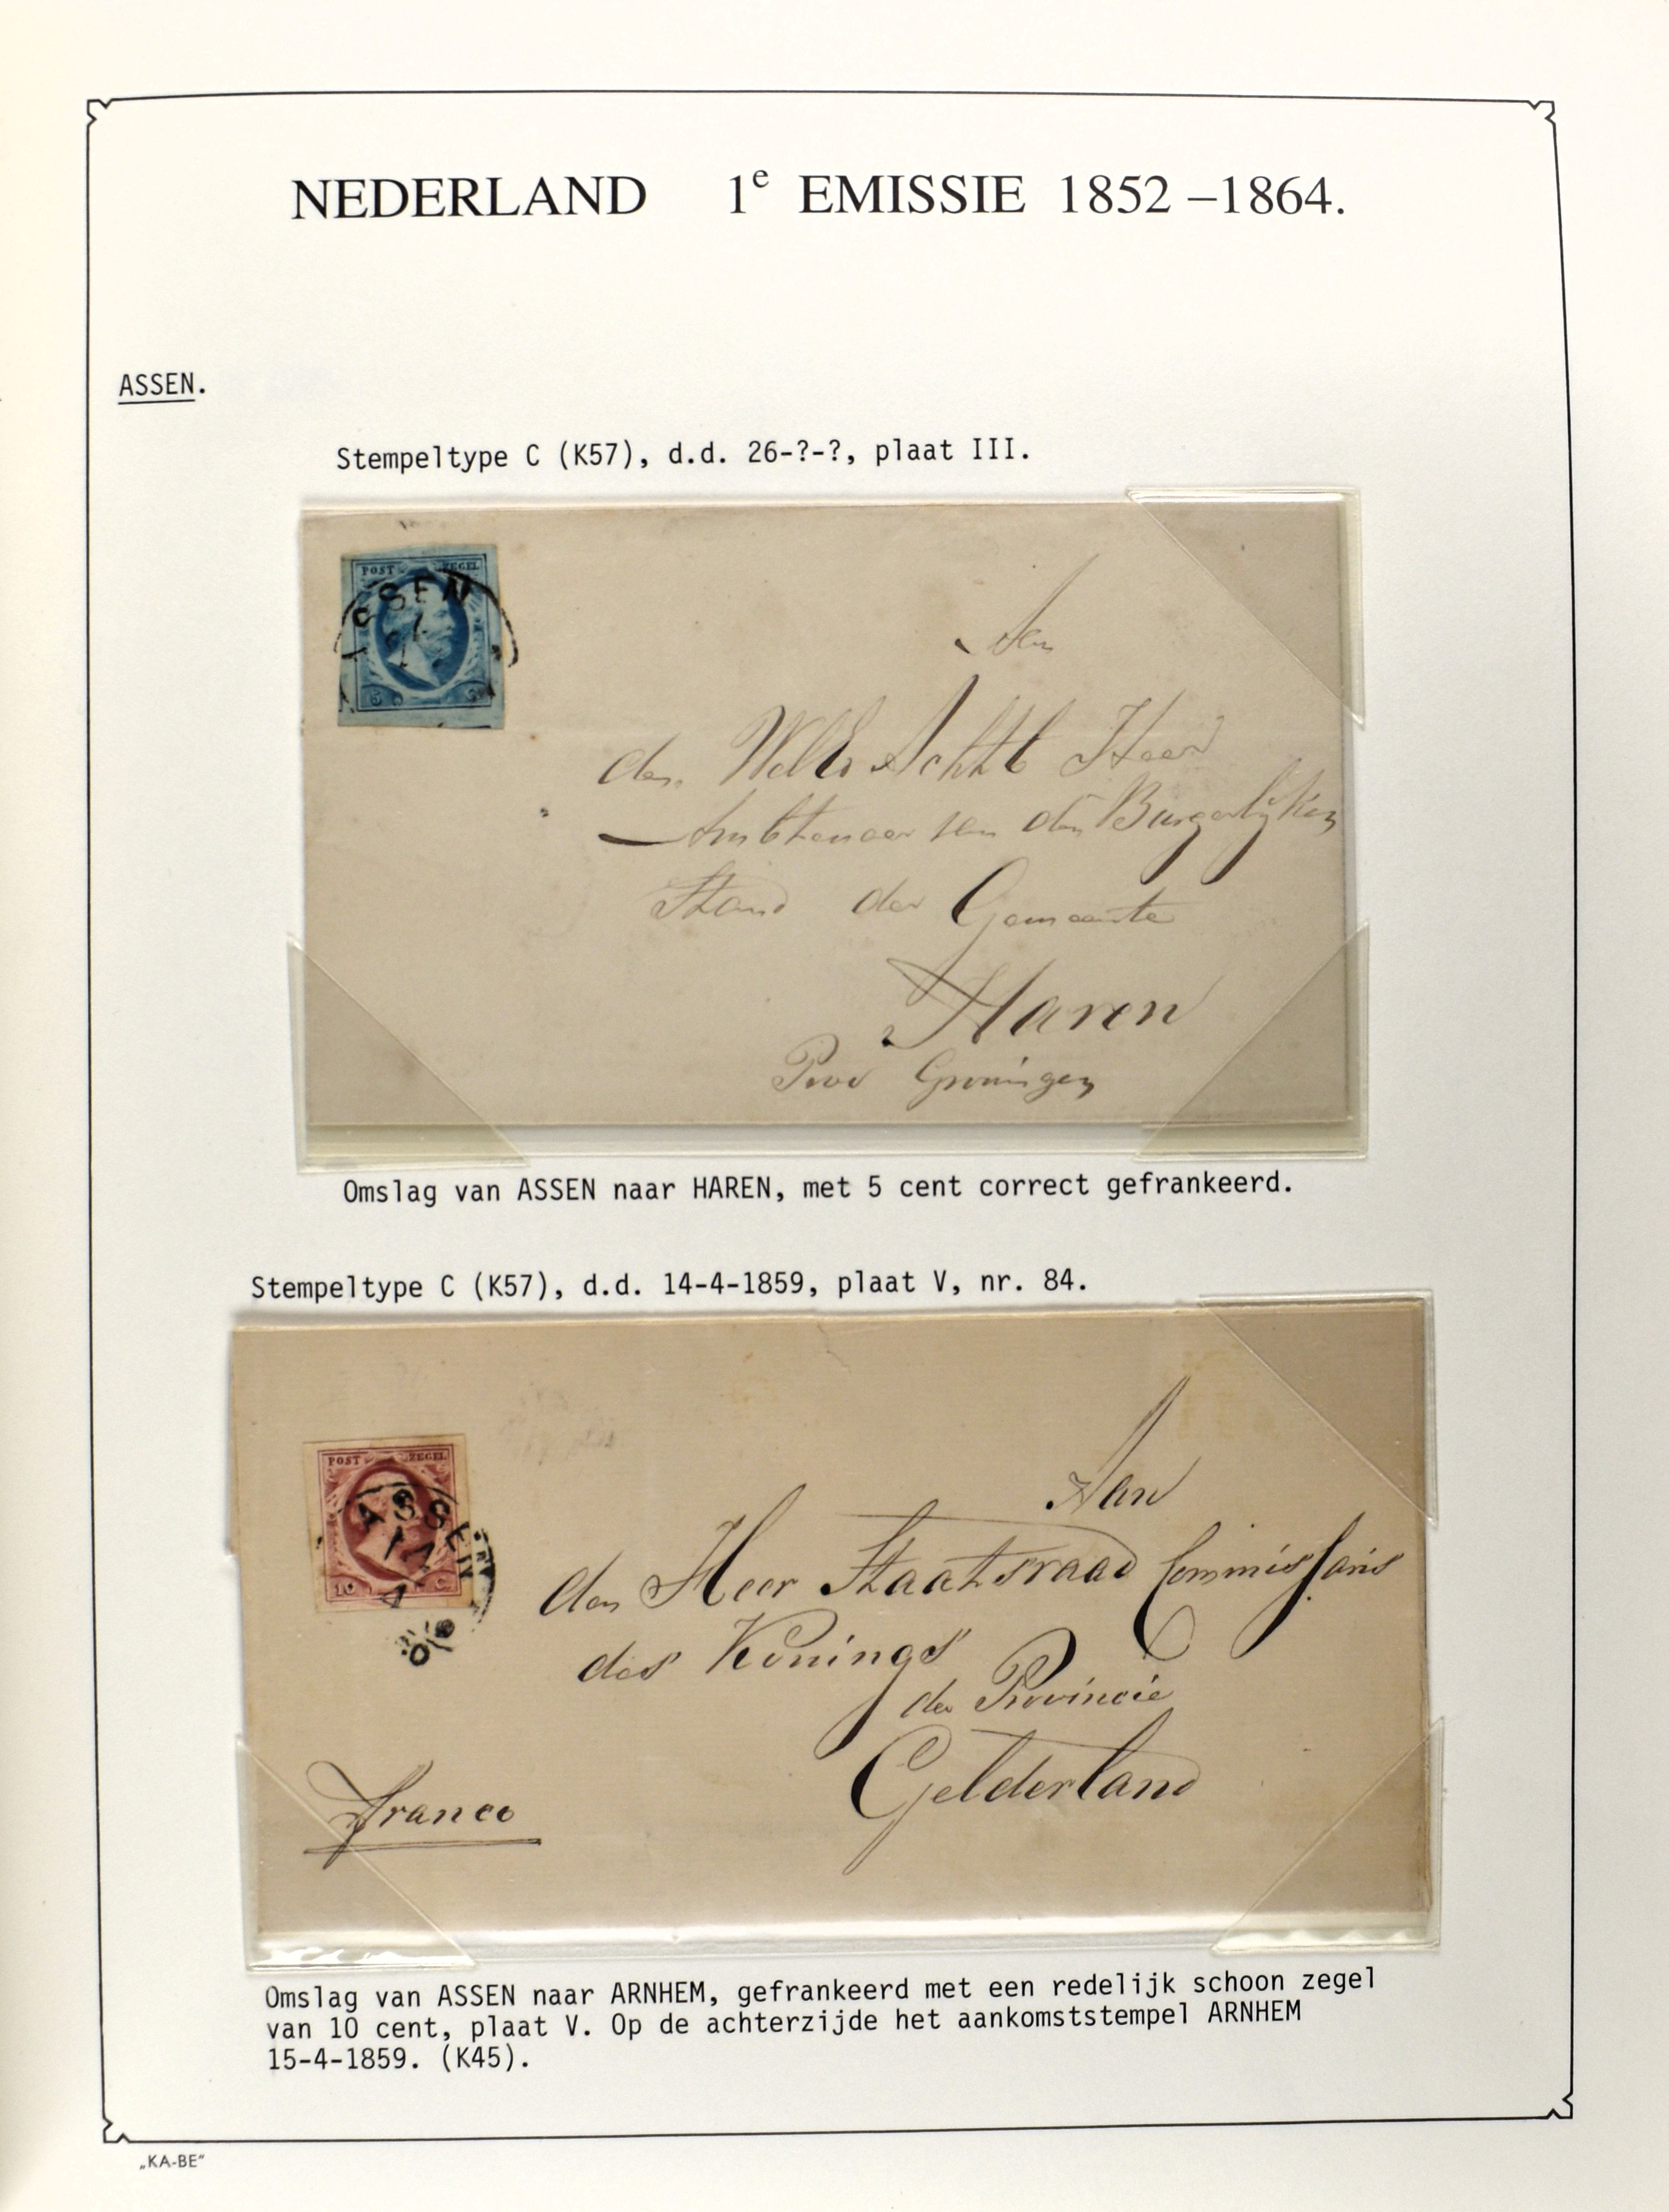 NEDERLAND 1e EMISSIE 1852–1864.
ASSEN.
Stempeltype C (K57), d.d. 26-?-?, plaat III.
POST ZEGEL
ASSEN
5 C
Aan
den WelEd Achtb Heer
Ambtenaar van den Burgerlijken
Stand der Gemeente
Haren
Prov Groningen
Omslag van ASSEN naar HAREN, met 5 cent correct gefrankeerd.
Stempeltype C (K57), d.d. 14-4-1859, plaat V, nr. 84.
POST ZEGEL
ASSEN
14
4
10 C
Aan
den Heer Staatsraad Commissaris
des Konings
der Provincie
Gelderland
Franco
Omslag van ASSEN naar ARNHEM, gefrankeerd met een redelijk schoon zegel
van 10 cent, plaat V. Op de achterzijde het aankomststempel ARNHEM
15-4-1859. (K45).
„KA-BE“